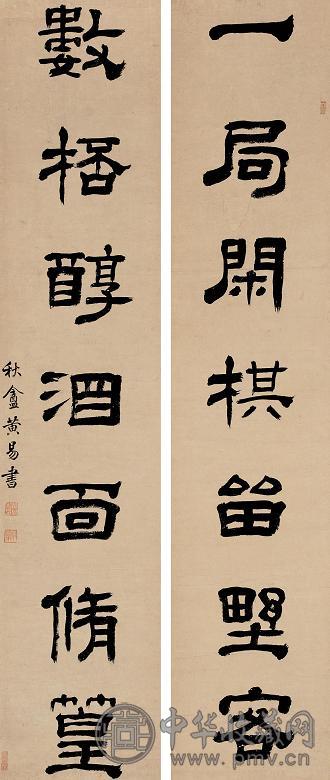 一局閑棋留野客
數桮醇酒面脩篁
秋盦黃易書
中华收藏网
www.pmv.cn